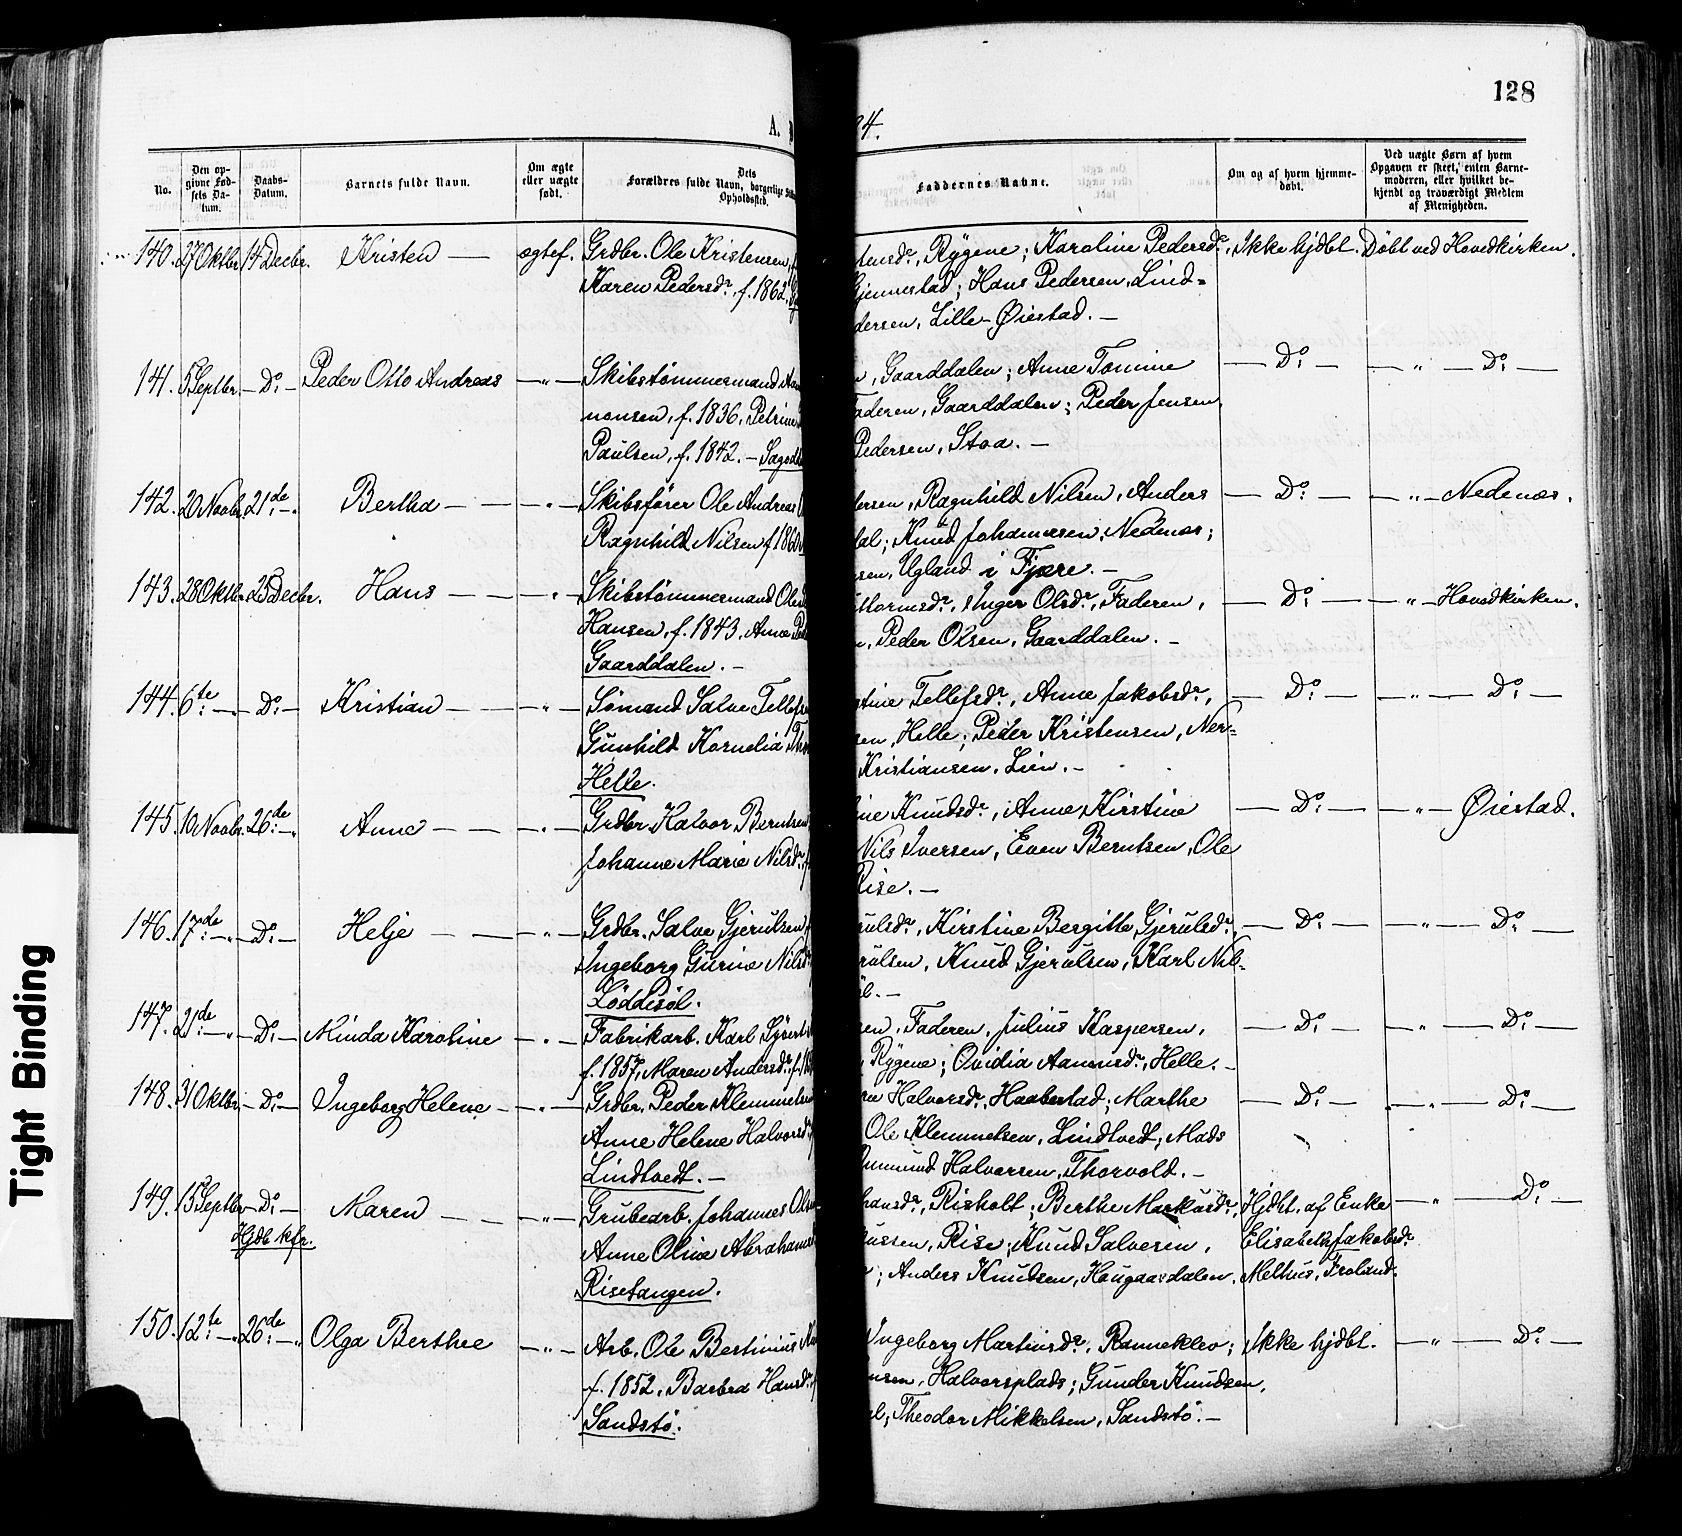 128
A.
4.
No.
Den op-
givne Fød-
sels Da-
tum.
Daabs-
Datum.
Barnets fulde Navn.
Om ægte
eller uægte
født.
Dets
Forældres fulde Navn, borgerlige
Opholdssted.
Faddernes Navne.
Om og af hvem hjemme-
døbt.
Ved uægte Børn af hvem
Opgaven er skeet, enten Barne-
moderen, eller hvilket be-
kjendt og troværdigt Medlem
af Menigheden.
140. 27 Oktbr. 14 Decbr. Kristen — ægtef. Grdbr. Ole Kristensen,
Karen Pedersdr. f. 1862.
Rygene; Karoline Pedersdr. Ikke hjdbt. Døbt ved Hovedkirken.
Gjennestad; Hans Pedersen, Lind=
dersen, Lille-Øiestad. —
141. 5 Septbr. — Do. — Peder Otto Andreas — " — Skibstømmermand
nonsen, f. 1836, Petrine
Paulsen, f. 1842. —
Gaarddalen; Anne Tomine — Do: — " — Do: —
Faderen, Gaarddalen; Peder Jensen,
Pedersen, Stoa. —
142. 20 Novbr. 21de — " Bertha — — " — Skibsfører Ole Andreas
Ragnhild Nilsen f. 1860
ersen, Ragnhild Nilsen, Anders — Do: — — " — Nedenæs.
dal; Knud Johannesen, Nedenæs;
sen, Ugland i Fjære. —
143. 28 Oktbr. 25 Decbr. Hans — — " — Skibstømmermand Ole
Hansen, f. 1843, Anne
Gaarddalen. —
Inger Olsdr., Faderen, — Do: — " — Hovedkirken.
n, Peder Olsen, Gaarddalen. —
144. 6te: — " — Do: — Kristian — — " — Sømand Salve Tellefsen
Gunhild Kornelia
Helle.
stine Tellefsdr., Anne Jakobsdr., — Do: — — " — Do: —
sen, Helle; Peder Kristensen, Ner=
Kristiansen, Lien. —
145. 10 Novbr. 26de: — " Anne — — " — Grdbr. Halvor Berntsen
Johanne Marie Nilsdr.
ine Knudsdr., Anne Kirstine — Do: — — " — Øiestad.
Nils Iversen, Even Berntsen, Ole
Rise. —
146. 17de: — " — Do: — Helje — — " — Grdbr. Salve Gjerulsen,
Ingeborg Gurine Nilsdr.
Løddesøl.
rulsdr., Kirstine Bergitte Gjerulsdr., — Do: — — " — Do: —
rulsen, Knud Gjerulsen, Karl Nil=
147. 21de: — " — Do: — Minda Karoline — " — Fabrikarb. Karl
f. 1857, Maren Andersdr. f.
en, Faderen, Julius Kaspersen, — Do: — — " — Do: —
Rygene; Ovidia Aanensdr., Helle. —
148. 31 Oktbr. — Do: — Ingeborg Helene — " — Grdbr. Peder Klemmetsen
Anne Helene Halvorsdr.
Lindtvedt. —
Halvorsdr., Haabestad; Marthe — Do: — — " — Do: —
Ole Klemmetsen, Lindtvedt; Mads
Halvorsen, Thorvold. —
149. 15 Septbr. — Do: — Maren — — " — Grubearb. Johannes Olsen
Hjdb. kfr.
Anne Oline Abrahamsdr.
Risetangen.
Risholt; Berthe Markusdr., Hjdbt. af Enke — " — Do: —
ussen, Rise; Knud Salvesen, Elisabeth Jakobsdr.
; Anders Knudsen, Haugaardalen. Melhus, Froland.
150. 12te: — " 26de: — " Olga Berthee — " — Arb. Ole Bertinius
f. 1852, Barbra Hansdr.
Sandstø.
Ingeborg Martinsdr., Ranneklev; Ikke hjdbt. — " — Do: —
nsen, Halvorsplads; Gunder Knudsen,
Theodor Mikkelsen, Sandstø. —
Tight Binding